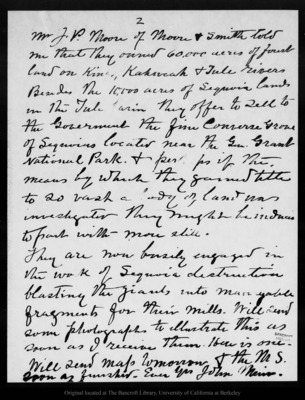 2
Mr J. P. Moore of Moore & Smith told
me that they owned 60,000 acres of forest
land on Kings, Kahweah & Tule Rivers
Besides the 12,000 acres of Sequoia lands
in the Tule basin they offer to sell to
the Goverment the fine Converse Grove
of Sequoias located near the Gen. Grant
National Park. & perhaps if the
means by which they gained title
to so vast a body of land was
investigated they might be induced
to part with more still.
They are now busily engaged in
the work of Sequoia destruction
blasting the giants into manageable
fragments for their mills. Will send
some photographs to illustrate this as
soon as I receive them. Here is one.
Will send maps tomorrow & the M.S.
soon as finished. Ever Yrs John Muir.
Original located at The Bancroft Library, University of California at Berkeley